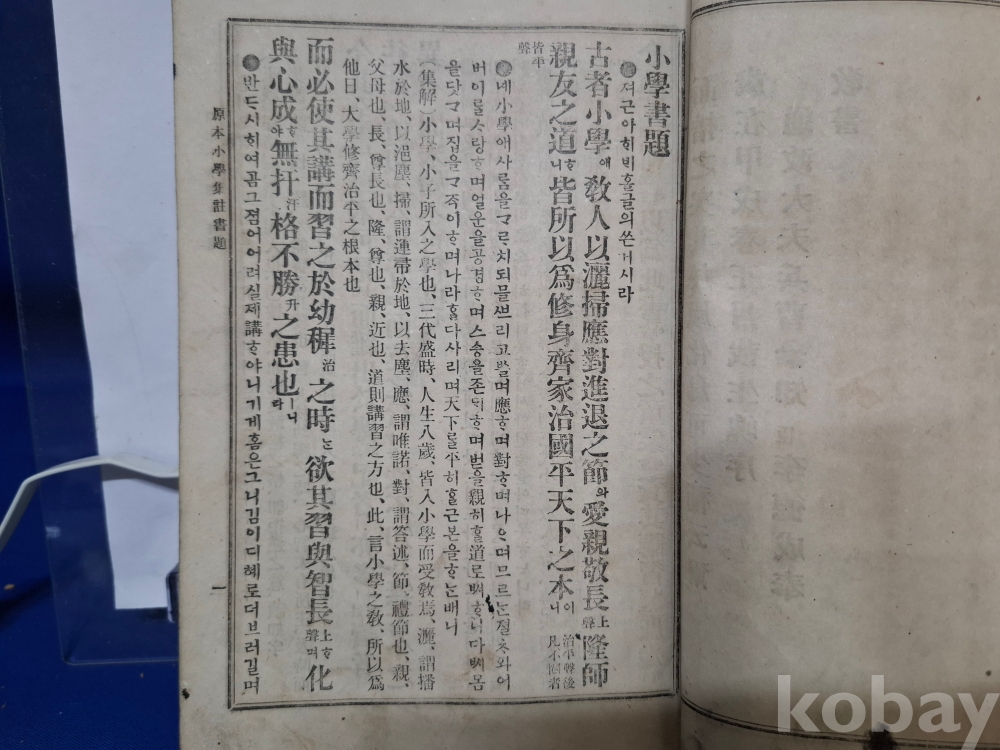 小學書題
져근아히비홀글의쓴거시라
古者小學애敎人以灑掃應對進退之節와愛親敬長上聲隆師
親友之道니皆所以爲修身齊家治國平天下之本이니治平聲後凡不音者
皆平聲
녜小學애사룸을ᄀᆞᄅᆞ치되믈ᄲᅳ리고ᄡᅳᆯ며應ᄒᆞ며對ᄒᆞ며나ᄋᆞ며므르ᄂᆞᆫ졀ᄎᆞ와어
버이ᄅᆞᆯᄉᆞ랑ᄒᆞ며얼운을공경ᄒᆞ며스승을존ᄃᆡᄒᆞ며벋을親히홀道로ᄡᅥᄒᆞ니다ᄡᅥ몸
을닷ᄀᆞ며집을ᄀᆞ죽이ᄒᆞ며나라홀다사리며天下ᄅᆞᆯ平히홀근본을ᄒᆞ논배니
(集解)小學、小子所入之學也、三代盛時、人生八歲、皆入小學而受敎焉、灑、謂播
水於地、以浥塵、掃、謂運帚於地、以去塵、應、謂唯諾、對、謂答述、節、禮節也、親、
父母也、長、尊長也、隆、尊也、親、近也、道則講習之方也、此、言小學之敎、所以爲
他日、大學修齊治平之根本也
而必使其講而習之於幼穉治之時ᄂᆞᆫ欲其習與智長上聲ᄒᆞ며化
與心成ᄒᆞ야無扞汗格不勝升之患也ㅣ니라
반ᄃᆞ시히여곰그졈어어려실제講ᄒᆞ야니기게홈은그니김이디혜로더브러길며
原本小學集註書題
一
kobay